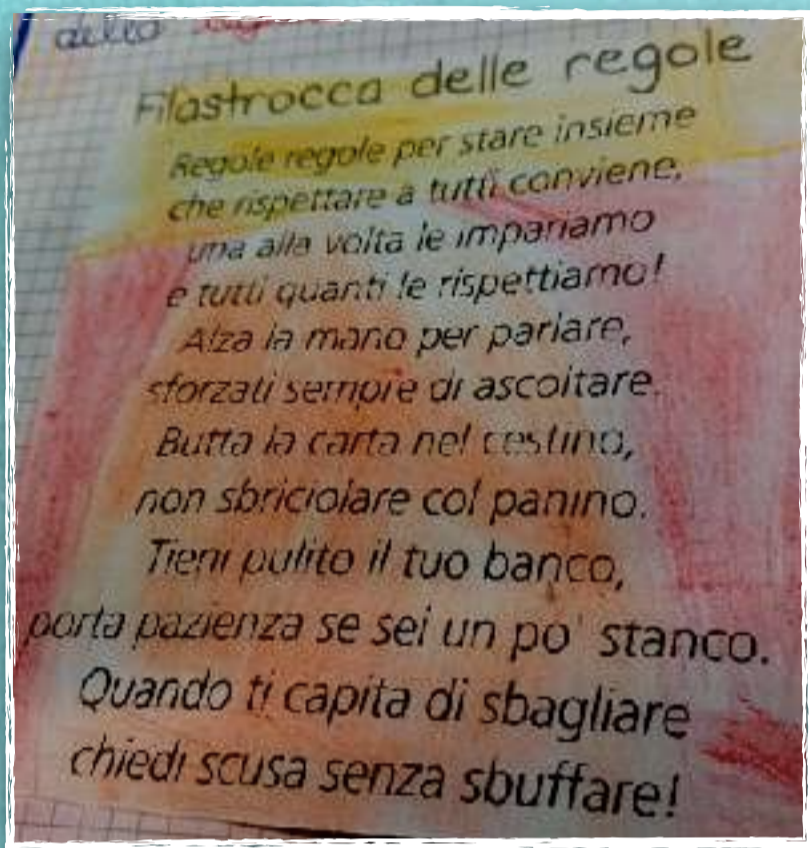 dello
Filastrocca delle regole
Regole regole per stare insieme
che rispettare a tutti conviene,
una alla volta le impariamo
e tutti quanti le rispettiamo!
Alza la mano per parlare,
sforzati sempre di ascoltare.
Butta la carta nel cestino,
non sbriciolare col panino.
Tieni pulito il tuo banco,
porta pazienza se sei un po' stanco.
Quando ti capita di sbagliare
chiedi scusa senza sbuffare!